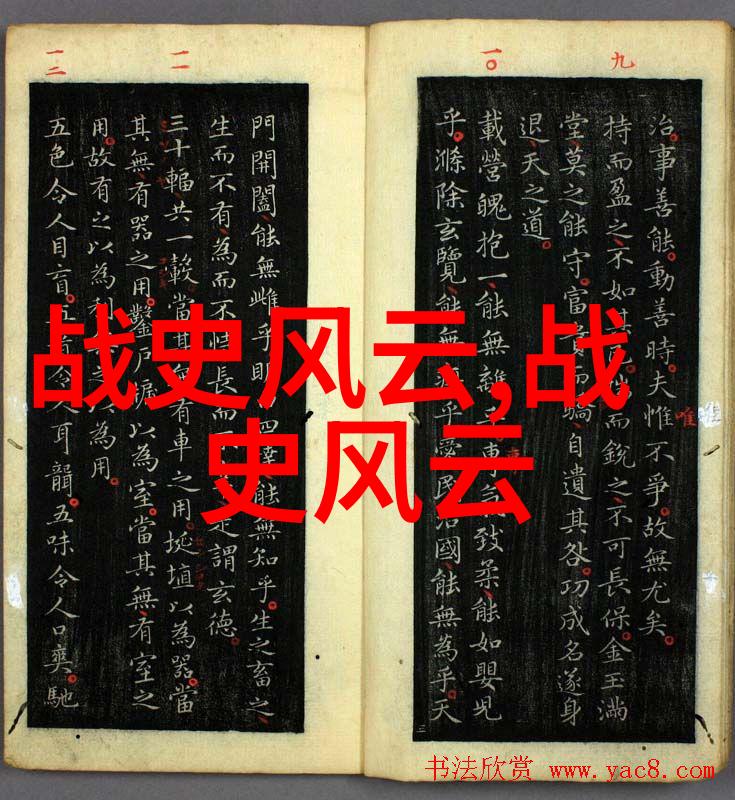 九
一〇
治。事善能。動善時。夫惟不爭。故無尤矣。
唯
持而盈之、不如其而銳之、不可長保。金玉滿
堂、莫之能守。富而驕、自遺其咎。功成名遂身
退、天之道。
載營魄抱一、能無離乎專氣致柔、能如嬰兒
乎。滌除玄覽、能無乎。愛民治國、能無為乎。天
一一
一二
門開闔、能無雌乎。明四達、能無知乎。生之畜之、
生而不有、為而不恃、長而不謂玄德。
三十輻、共一轂、當其有車之用。埏埴以為器、當
其無、有器之用。鑿戶牖以為室、當其無、有室之
用。故有之以為利以為用。
五色令人目盲。五音令人耳聾。五味令人口爽。馳
战史风云,战
史风云
书法欣赏 www.yac8.com